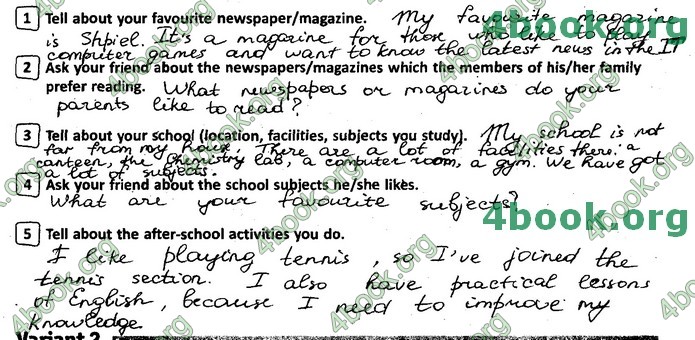 1 Tell about your favourite newspaper/magazine. My favourite magazine
is Shpiel. It's a magazine for those who like to play
computer games and want to know the latest news in the IT
2 Ask your friend about the newspapers/magazines which the members of his/her family
prefer reading. What newspapers or magazines do your
parents like to read?
3 Tell about your school (location, facilities, subjects you study). My school is not
far from my house. There are a lot of facilities there: a
canteen, the Chemistry lab, a computer room, a gym. We have got
a lot of subjects.
4 Ask your friend about the school subjects he/she likes.
What are your favourite subjects?
5 Tell about the after-school activities you do.
I like playing tennis, so I've joined the
tennis section. I also have practical lessons
of English, because I need to improve my
knowledge.
Variant 2
4book.org
4book.org